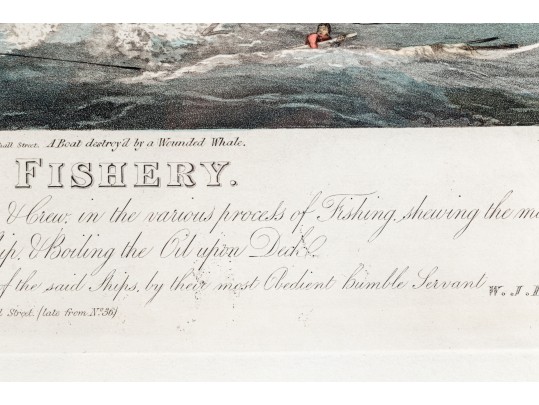 all Street. A Boat destroy'd by a Wounded Whale.
FISHERY.
& Crew, in the various process of Fishing, shewing the m
ip, & Boiling the Oil upon Deck &c.
of the said Ships, by their most Obedient humble Servant W. J. H
l Street. (late from No. 36)